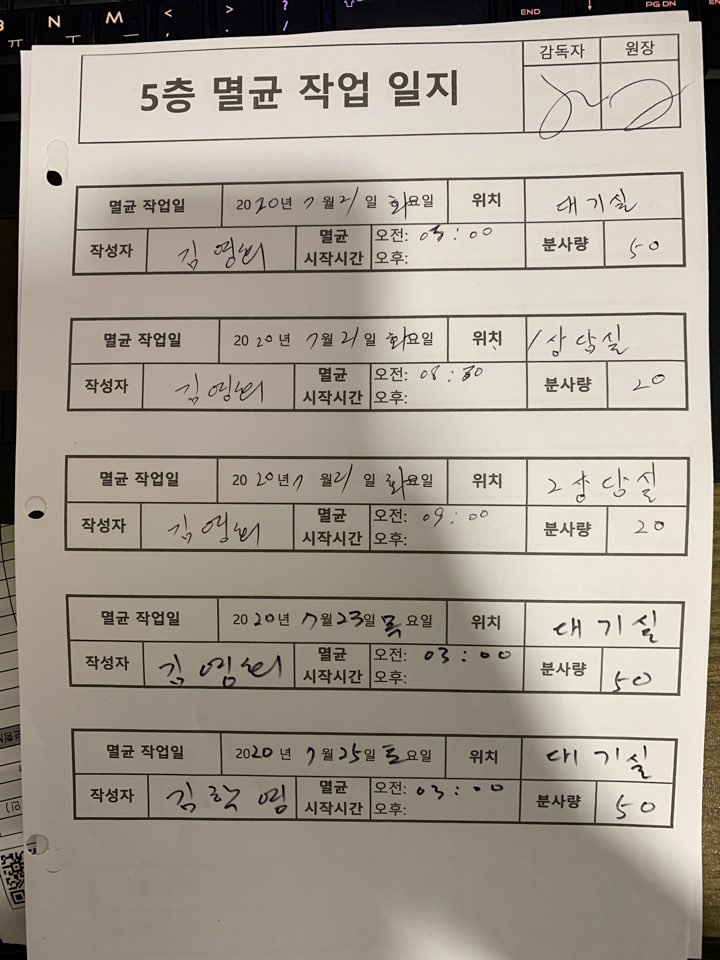 B N M < > ? / END PG DN
ㅠ ㅜ ㅡ , .
5층 멸균 작업 일지
감독자 원장
멸균 작업일 2020년 7월 21일 화요일 위치 대기실
작성자 김영희 멸균 시작시간 오전: 03:00 오후: 분사량 50
멸균 작업일 2020년 7월 21일 화요일 위치 1상담실
작성자 김영희 멸균 시작시간 오전: 08:30 오후: 분사량 20
멸균 작업일 2020년 7월 21일 화요일 위치 2상담실
작성자 김영희 멸균 시작시간 오전: 09:00 오후: 분사량 20
멸균 작업일 2020년 7월 23일 목요일 위치 대기실
작성자 김영희 멸균 시작시간 오전: 03:00 오후: 분사량 50
멸균 작업일 2020년 7월 25일 토요일 위치 대기실
작성자 김학영 멸균 시작시간 오전: 03:00 오후: 분사량 50